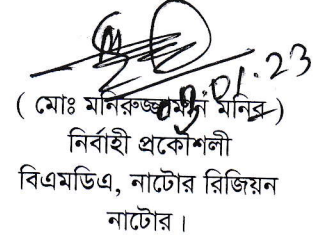 03.01.23
( মোঃ মনিরুজ্জামান মনির )
নির্বাহী প্রকৌশলী
বিএমডিএ, নাটোর রিজিয়ন
নাটোর।